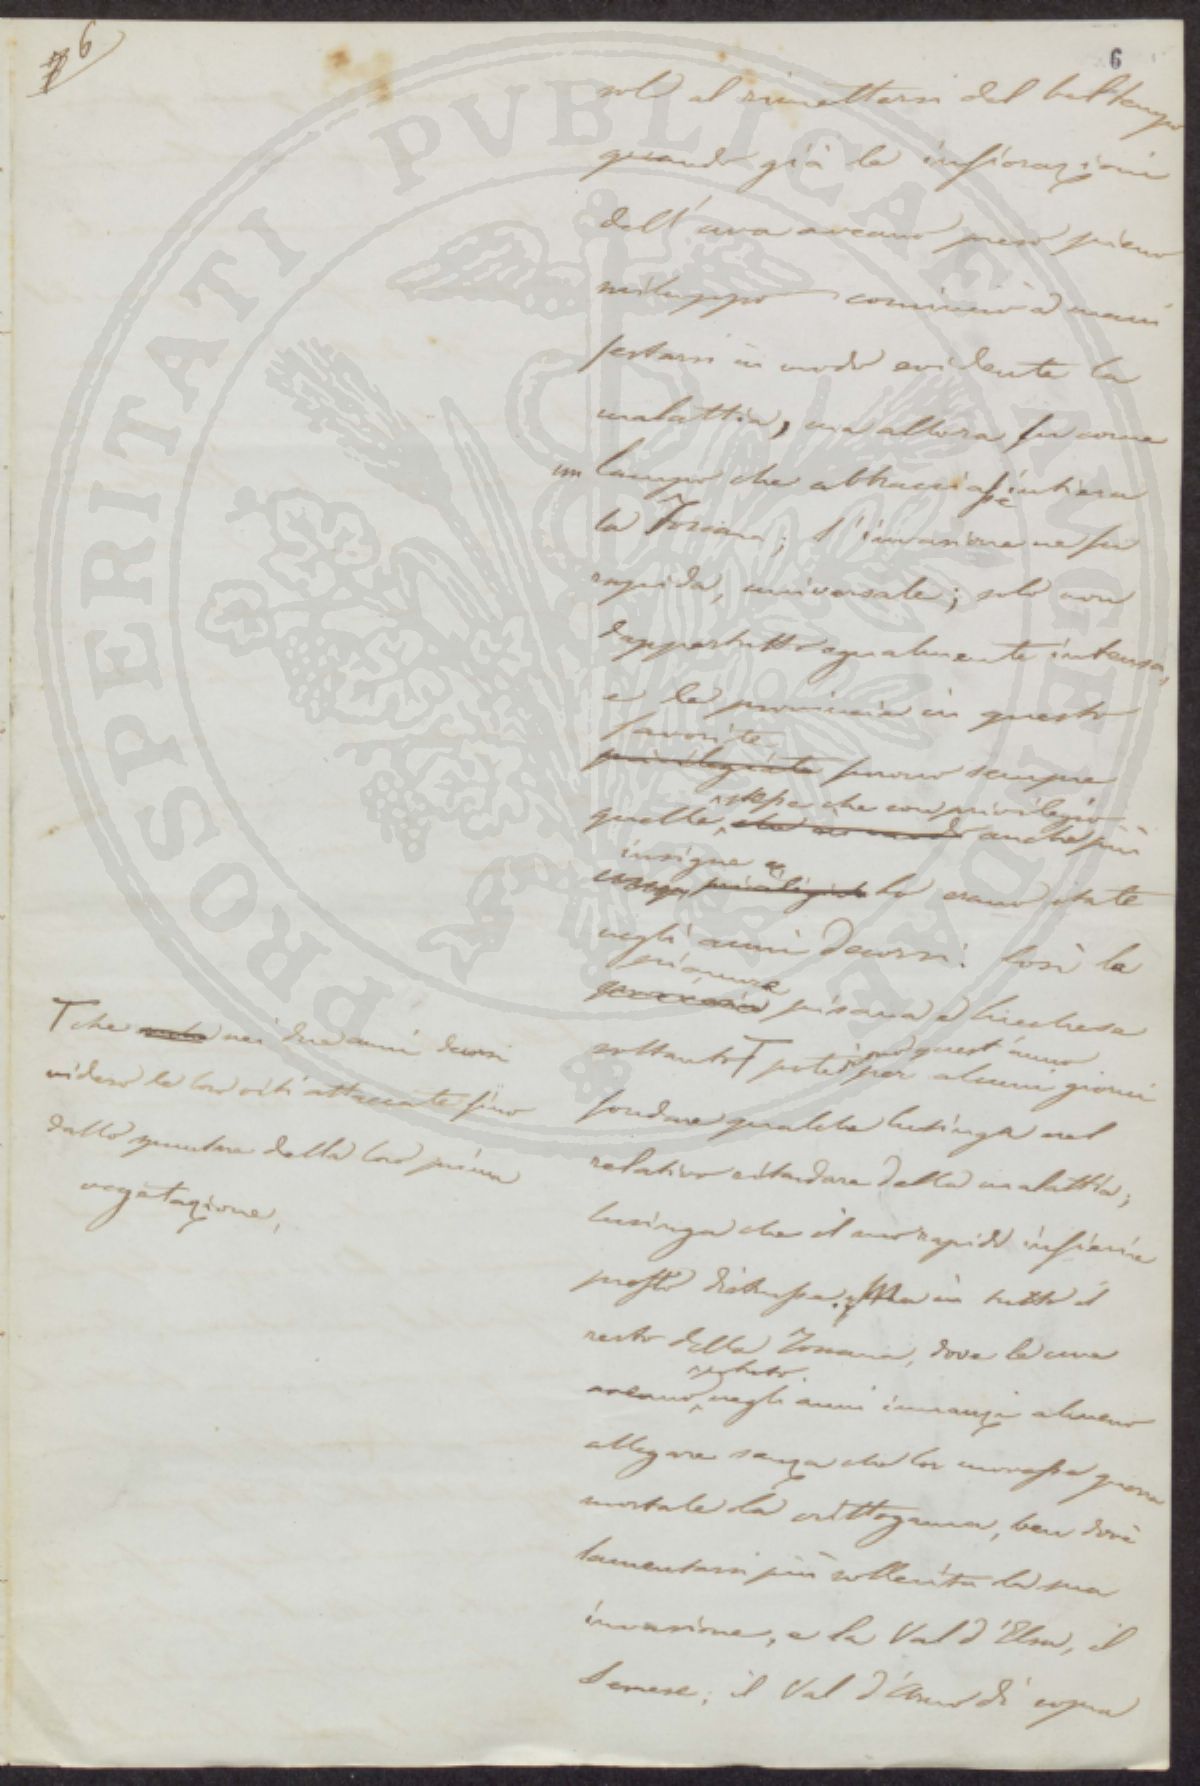 6
6
solo al rimettersi del bel tempo
quando già le infiorazioni
dell'uva aveano preso pieno
sviluppo cominciò a mani
festarsi in modo evidente la
malattia, ma allora fu come
un lampo che abbracciasse intiera
la Toscana; l'invasione ne fu
rapida, universale; solo non
dappertutto egualmente intensa,
e le provincie in questo
favorite
privilegiate furono sempre
stesse che con privilegio
quelle, anche più
insigne
privilegiate lo erano state
negli anni decorsi. Così la
pianura
pisana e lucchese
no quest'anno
soltanto T potè per alcuni giorni
fondare qualche lusinga nel
relativo ritardare della malattia;
lusinga che il suo rapido infierire
presto distrusse. Ma in tutto il
resto della Toscana, dove le uve
veduto
aveano negli anni innanzi almeno
allegare senza che lor movesse guerra
mortale la crittogama, ben dovè
lamentarsi più sollecita la sua
invasione, e la Val d'Elsa, il
Senese, il Val d'Arno di sopra
T che nei due anni decorsi
videro le loro viti attaccate fino
dallo spuntare della loro prima
vegetazione,
PROSPERITATI PVBLICAE AVGENDAE